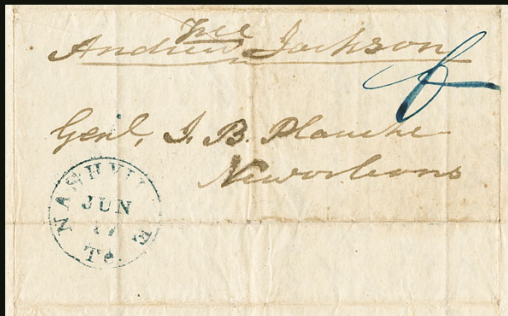 Free
Andrew Jackson
Genl, J. B. Planche
Neworleans
NASHVILLE
JUN
Te.